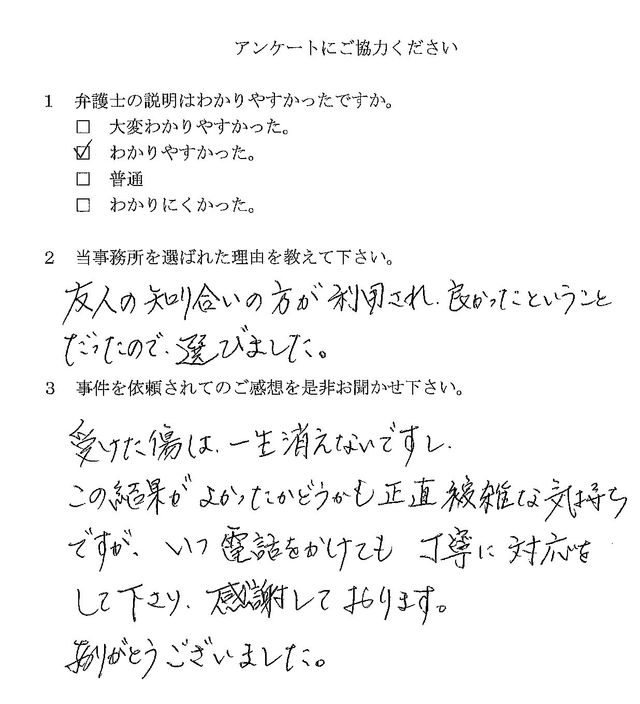 アンケートにご協力ください
1 弁護士の説明はわかりやすかったですか。
□ 大変わかりやすかった。
☑ わかりやすかった。
□ 普通
□ わかりにくかった。
2 当事務所を選ばれた理由を教えて下さい。
友人の知り合いの方が利用され、良かったということ
だったので、選びました。
3 事件を依頼されてのご感想を是非お聞かせ下さい。
受けた傷は、一生消えないですし、
この結果がよかったかどうかも正直複雑な気持ち
ですが、いつ電話をかけても丁寧に対応を
して下さり、感謝しております。
ありがとうございました。